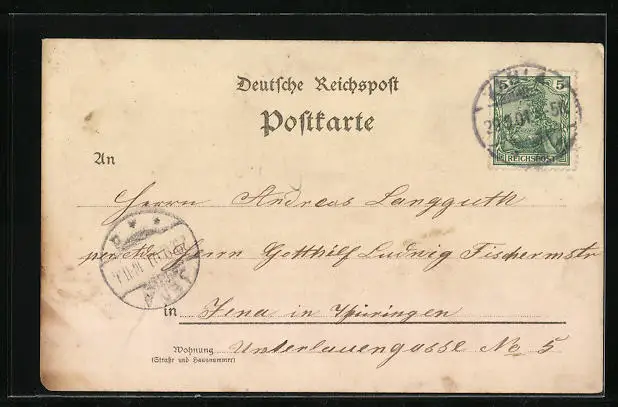 Deutsche Reichspost
Postkarte
5 5
REICHSPOST
An
Herrn Andreas Langguth
Herrn Gotthilf Ludwig Fischermstr
in Jena in Thüringen
Wohnung Unterlauengasse No 5
(Straße und Hausnummer)